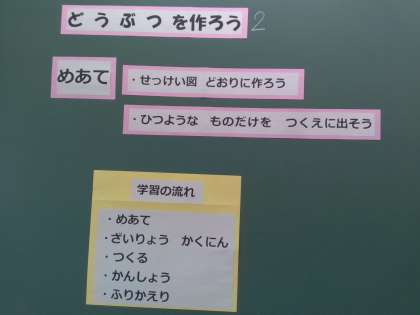 どうぶつを作ろう 2
めあて
・せっけい図 どおりに作ろう
・ひつような ものだけを つくえに出そう
学習の流れ
・めあて
・ざいりょう かくにん
・つくる
・かんしょう
・ふりかえり